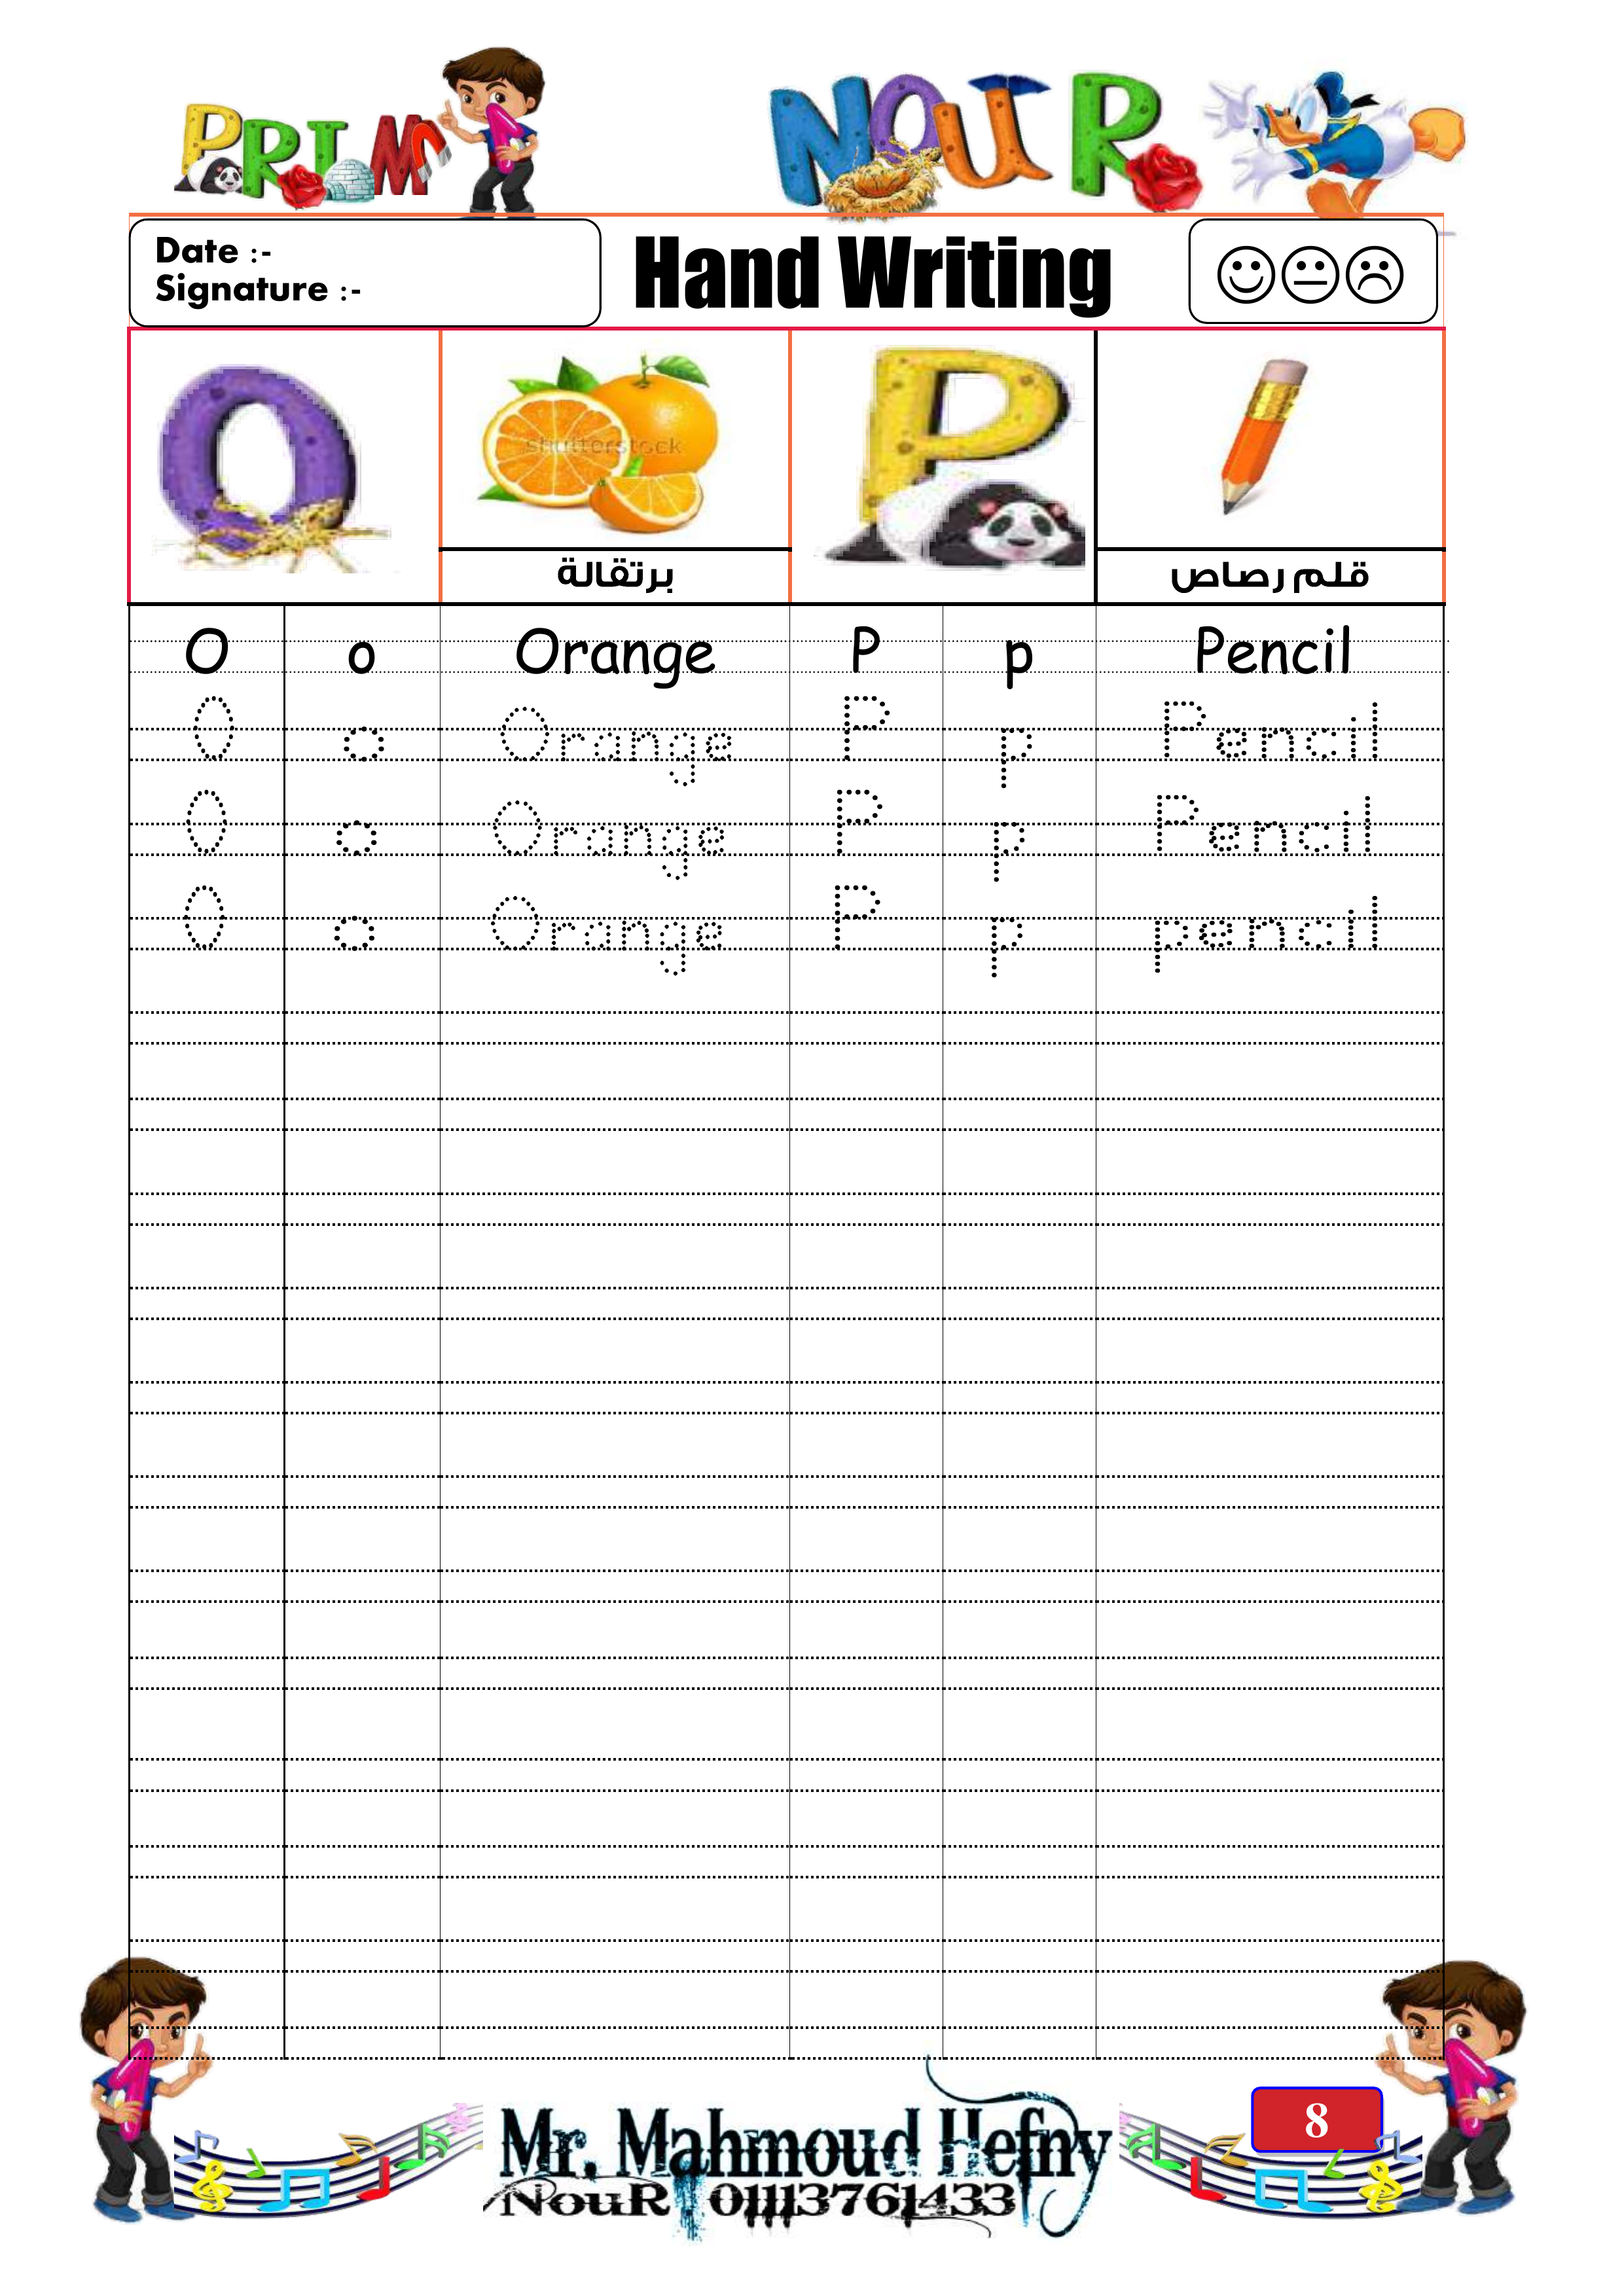 PRIM 1 NOUR
Date :-
Signature :-
Hand Writing
O
shutterstock
P
برتقالة
قلم رصاص
O o Orange P p Pencil
O o Orange P p Pencil
O o Orange P p Pencil
O o Orange P p pencil
8
Mr. Mahmoud Hefny
NouR 01113761433